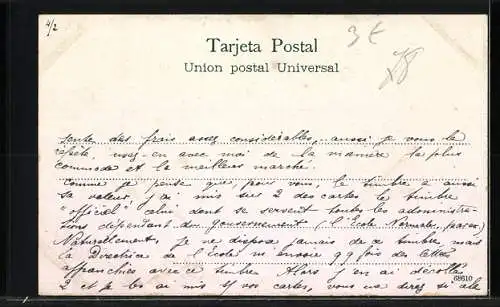 4/2
3 €
Tarjeta Postal
Union postal Universal
sente des frais assez considérables, aussi je vous le
répète, usez-en avec moi de la manière la plus
commode et la meilleur marché.
Comme je pense que, pour vous, le timbre a aussi
sa valeur, j'ai mis sur 2 des cartes le timbre
"officiel" celui dont se servent toutes les administra-
tions dépendant du gouvernement (l'École Normale, par ex)
Naturellement, je ne dispose jamais de ce timbre, mais
la Directrice de l'école m'envoie qq fois des lettres
affranchies avec ce timbre. Alors j'en ai décollés
2 et je les ai mis sur vos cartes, vous me direz si elle
68610